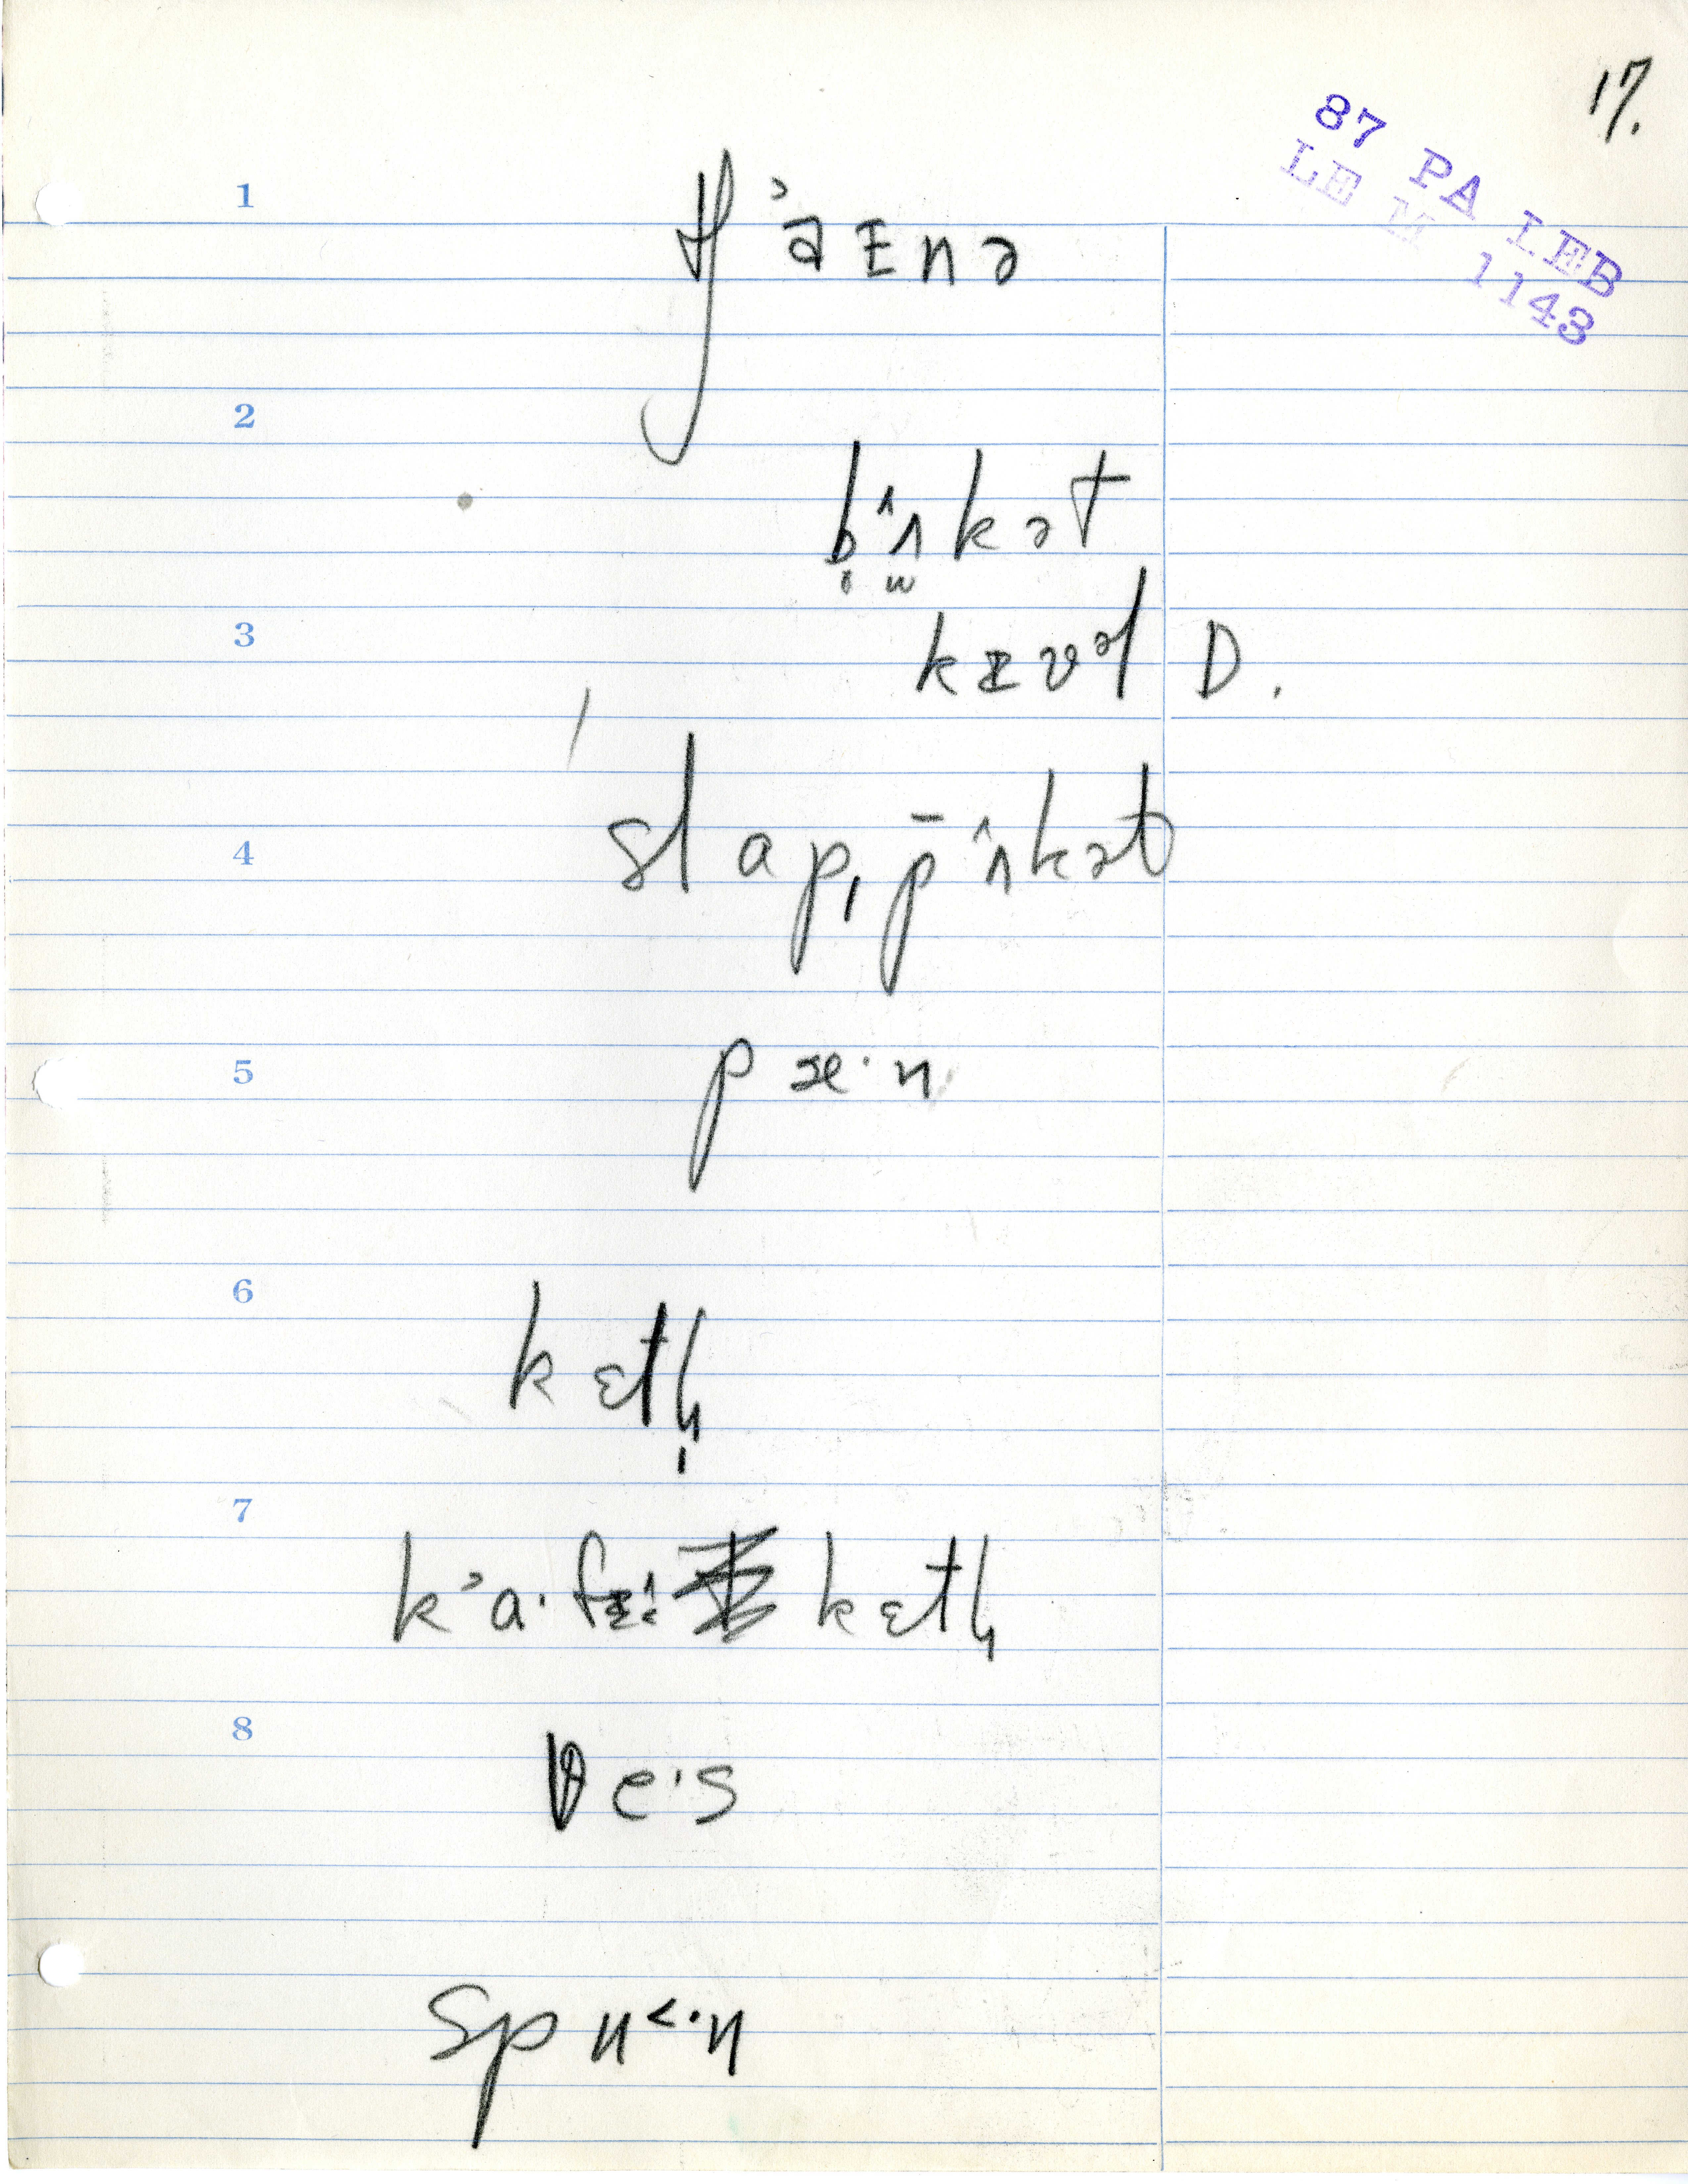 17.
87 PA LEB
LE M 1143
1
tʃ᾽a ɪ n ə
2
b ʌ̂ k ə t
3
k ɪ v ə l D.
4
s l a p, p̄ ʌ̂ k ə t
5
p æ · n
6
k ɛ t l̩
7
k ᾽a · f ɪ k ɛ t l
8
v e · s
s p u ˂· n